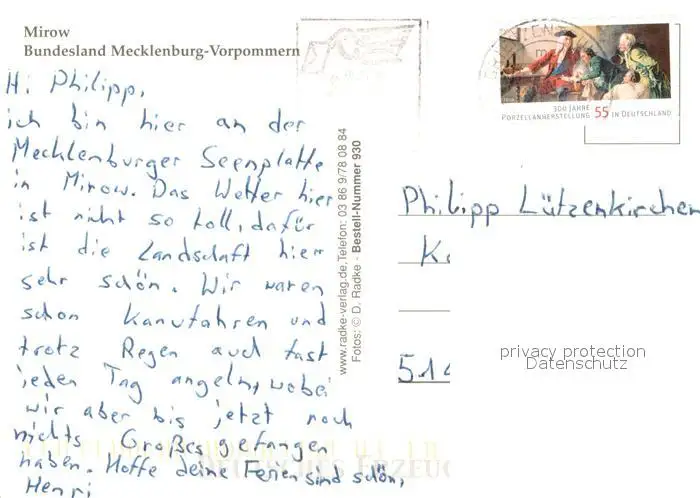 Mirow
Bundesland Mecklenburg-Vorpommern
Hi Philipp,
ich bin hier an der
Mecklenburger Seenplatte
in Mirow. Das Wetter hier
ist nicht so toll, dafür
ist die Landschaft hier
sehr schön. Wir waren
schon Kanufahren und
trotz Regen auch fast
jeden Tag angeln, wobei
wir aber bis jetzt noch
nichts Großes gefangen
haben. Hoffe deine Ferien sind schön,
Henri
www.radke-verlag.de, Telefon: 03 86 9/78 08 84
Fotos: © D. Radke - Bestell-Nummer 930
300 JAHRE
PORZELLANHERSTELLUNG 55 IN DEUTSCHLAND
Philipp Lützenkirchen
K
514
privacy protection
Datenschutz